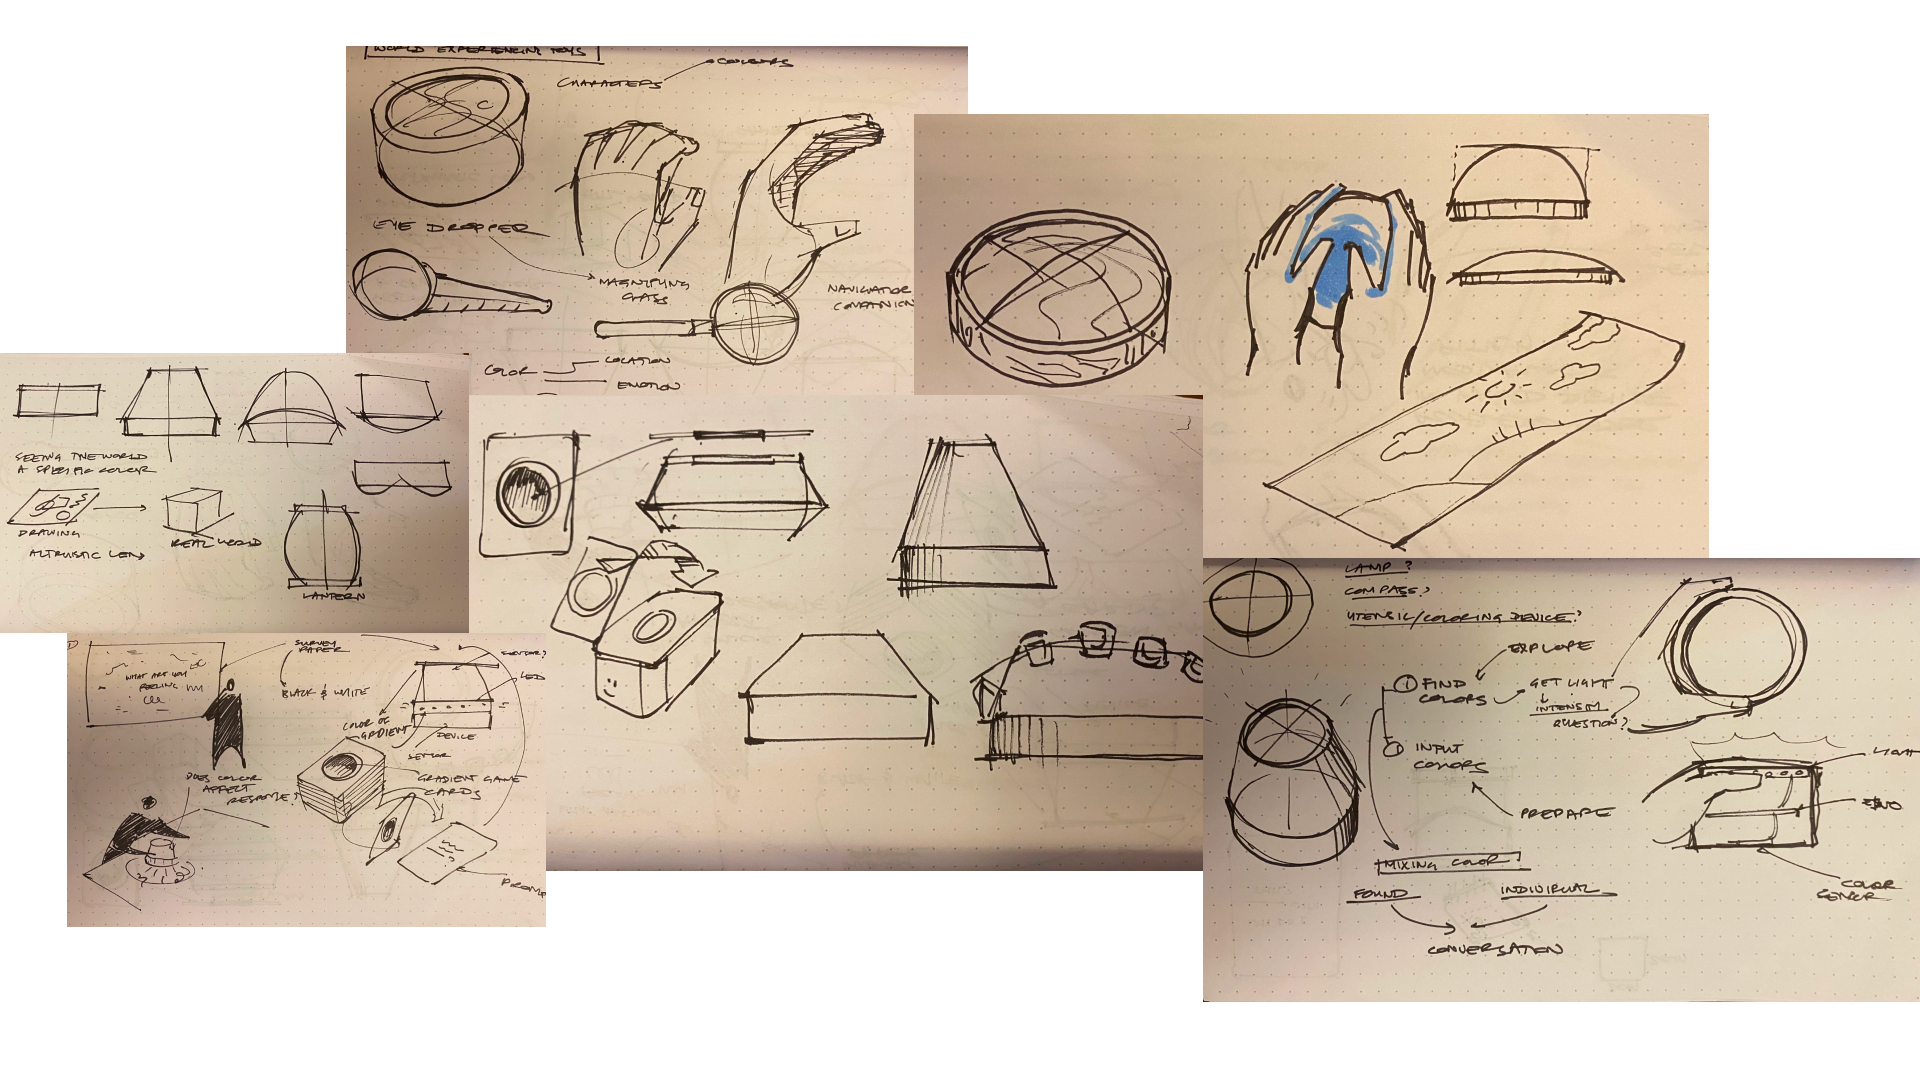 WORLD EXPERIENCING TOYS
CHARACTERS
COLOURS
EYE DROPPER
MAGNIFYING
GLASS
NAVIGATOR
COMPANION
COLOR
LOCATION
EMOTION
SEEING THE WORLD
A SPECIFIC COLOUR
DRAWING
REAL WORLD
ALTRUISTIC LENS
LANTERN
SURVEY
PAPER
WHAT ARE YOU
FEELING
BLACK & WHITE
SENSOR?
LED
COLOR OF
GRADIENT
DEVICE
SENSOR
GRADIENT GAME
CARDS
DOES COLOR
AFFECT
RESPONSE?
LAMP?
COMPASS?
UTENSIL/COLORING DEVICE?
EXPLORE
1 FIND
COLORS
GET LIGHT
INTENSITY
QUESTION?
INPUT
COLORS
PREPARE
MIXING COLOR
FOUND
INDIVIDUAL
CONVERSATION
LIGHT
COLOR
SENSOR